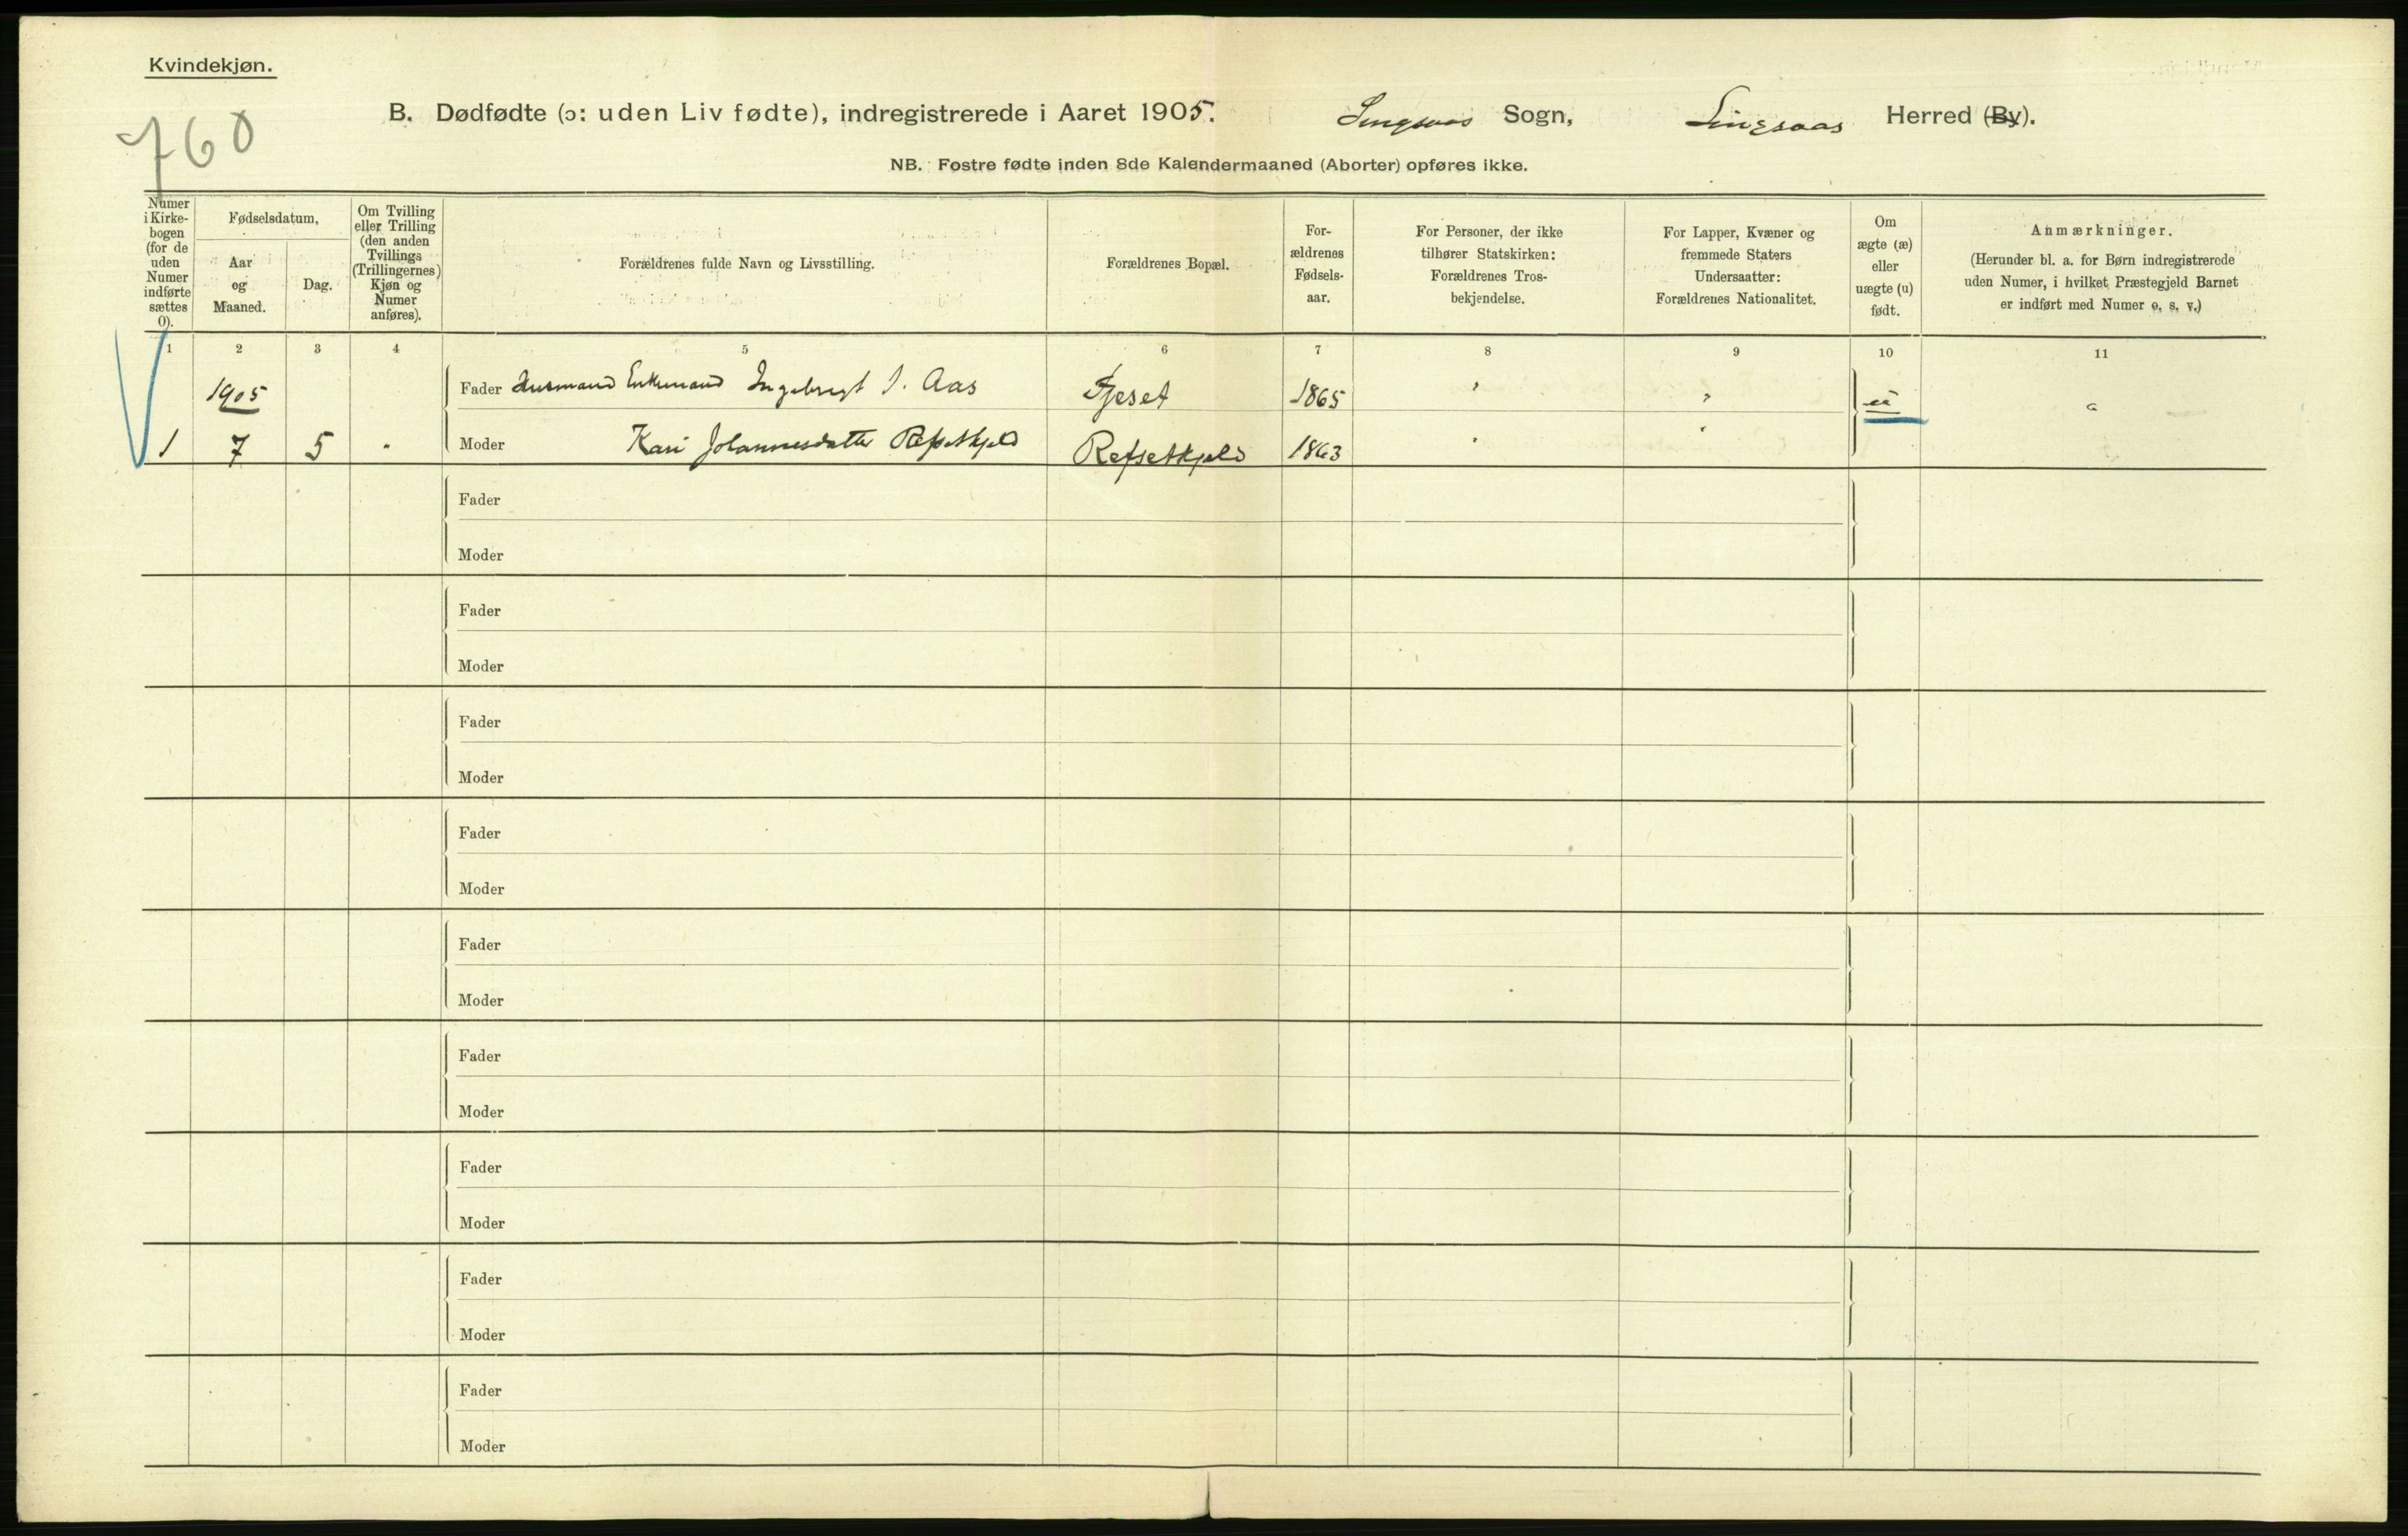 Kvindekjøn.
760
B. Dødfødte (ɔ: uden Liv fødte), indregistrerede i Aaret 1905. Singsaas Sogn, Singsaas Herred (By).
NB. Fostre fødte inden 8de Kalendermaaned (Aborter) opføres ikke.
Numer
i Kirke-
bogen
(for de
uden
Numer
indførte
sættes
0).
Fødselsdatum.
Aar
og
Maaned.
Dag.
Om Tvilling
eller Trilling
(den anden
Tvillings
(Trillingernes)
Kjøn og
Numer
anføres).
Forældrenes fulde Navn og Livsstilling.
Forældrenes Bopæl.
For-
ældrenes
Fødsels-
aar.
For Personer, der ikke
tilhører Statskirken:
Forældrenes Tros-
bekjendelse.
For Lapper, Kvæner og
fremmede Staters
Undersaatter:
Forældrenes Nationalitet.
Om
ægte (æ)
eller
uægte (u)
født.
Anmærkninger.
(Herunder bl. a. for Børn indregistrerede
uden Numer, i hvilket Præstegjeld Barnet
er indført med Numer o. s. v.)
1 2 3 4 5 6 7 8 9 10 11
1905 Fader Husmand Enkemand Ingebrigt J. Aas Fjeset 1865 " " u "
1 7 5 " Moder Kari Johannesdatter Refsetkjeld Refsetkjeld 1863 " "
Fader
Moder
Fader
Moder
Fader
Moder
Fader
Moder
Fader
Moder
Fader
Moder
Fader
Moder
Fader
Moder
Fader
Moder